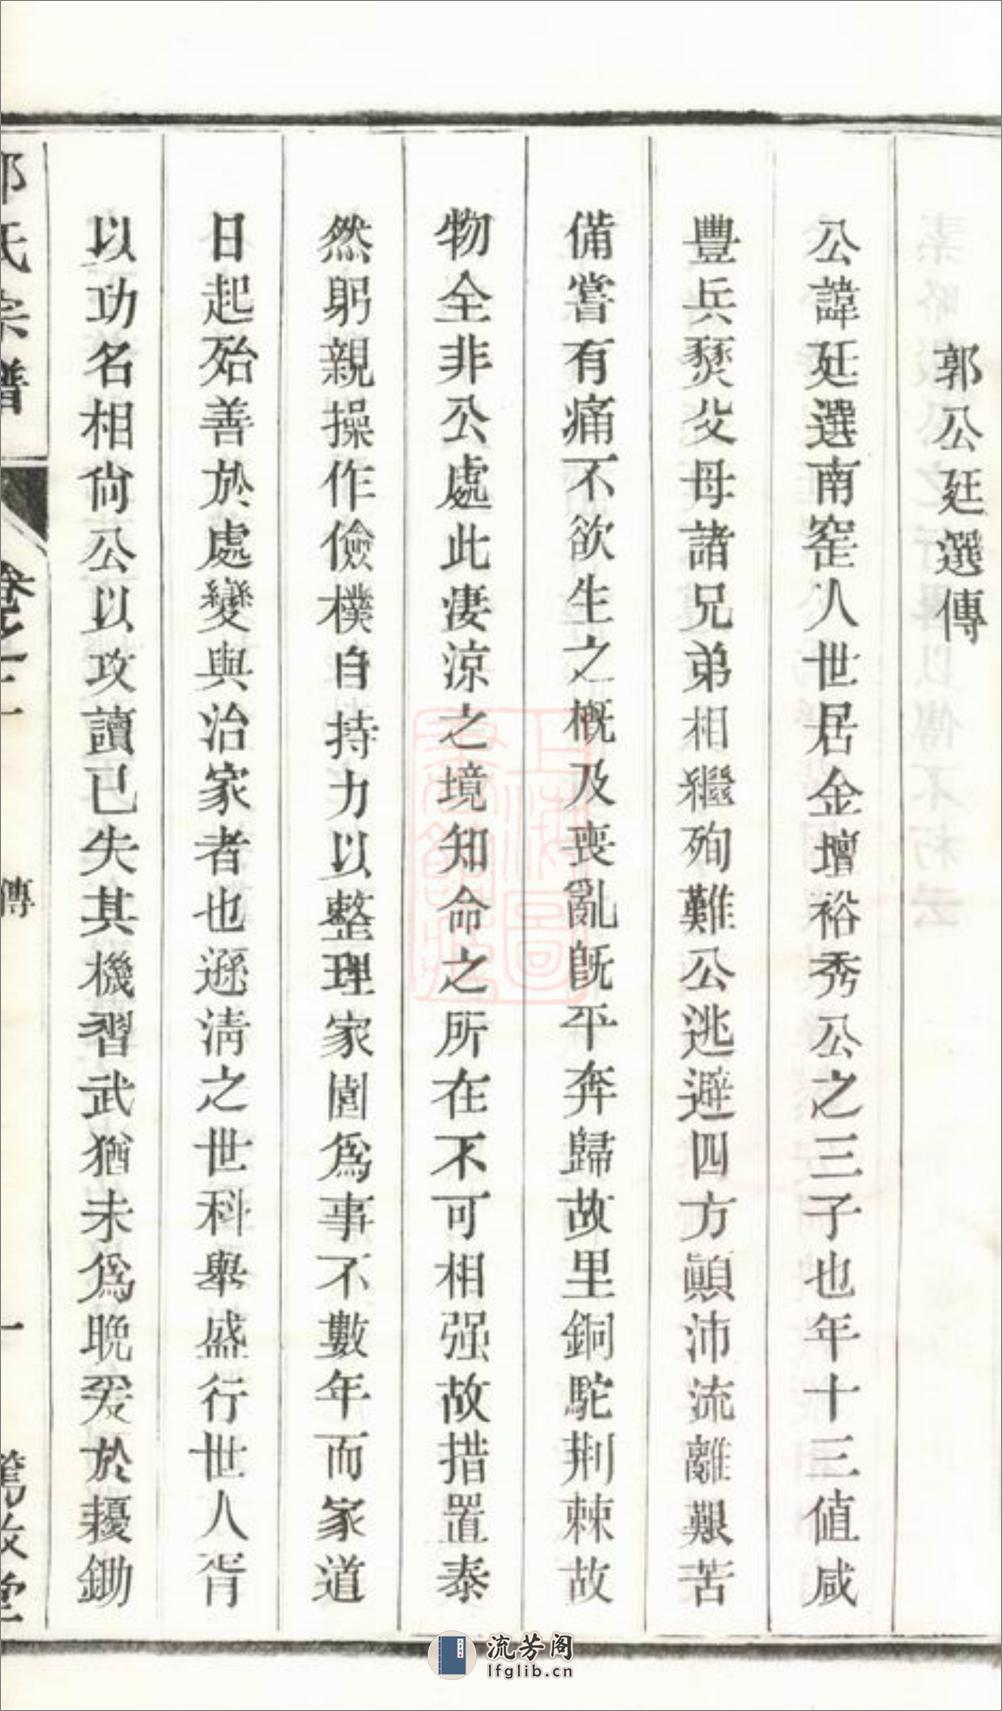 郭公廷選傳
公諱廷選南窰人世居金壇裕秀公之三子也年十三值咸
豐兵燹父母諸兄弟相繼殉難公逃避四方顚沛流離艱苦
備嘗有痛不欲生之概及喪亂旣平奔歸故里銅駝荆棘故
物全非公處此淒涼之境知命之所在不可相强故措置泰
然躬親操作儉樸自持力以整理家園爲事不數年而家道
日起殆善於處變與治家者也遜淸之世科舉盛行世人胥
以功名相尙公以攻讀已失其機習武猶未爲晩爰於耰鋤
郭氏宗譜
卷之二
傳
一
篤敬堂
上海圖
流芳阁
lfglib.cn